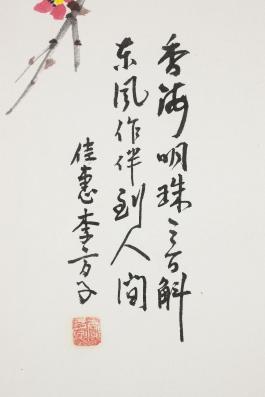 香海明珠三百斛
东风作伴到人间
佳惠李方子